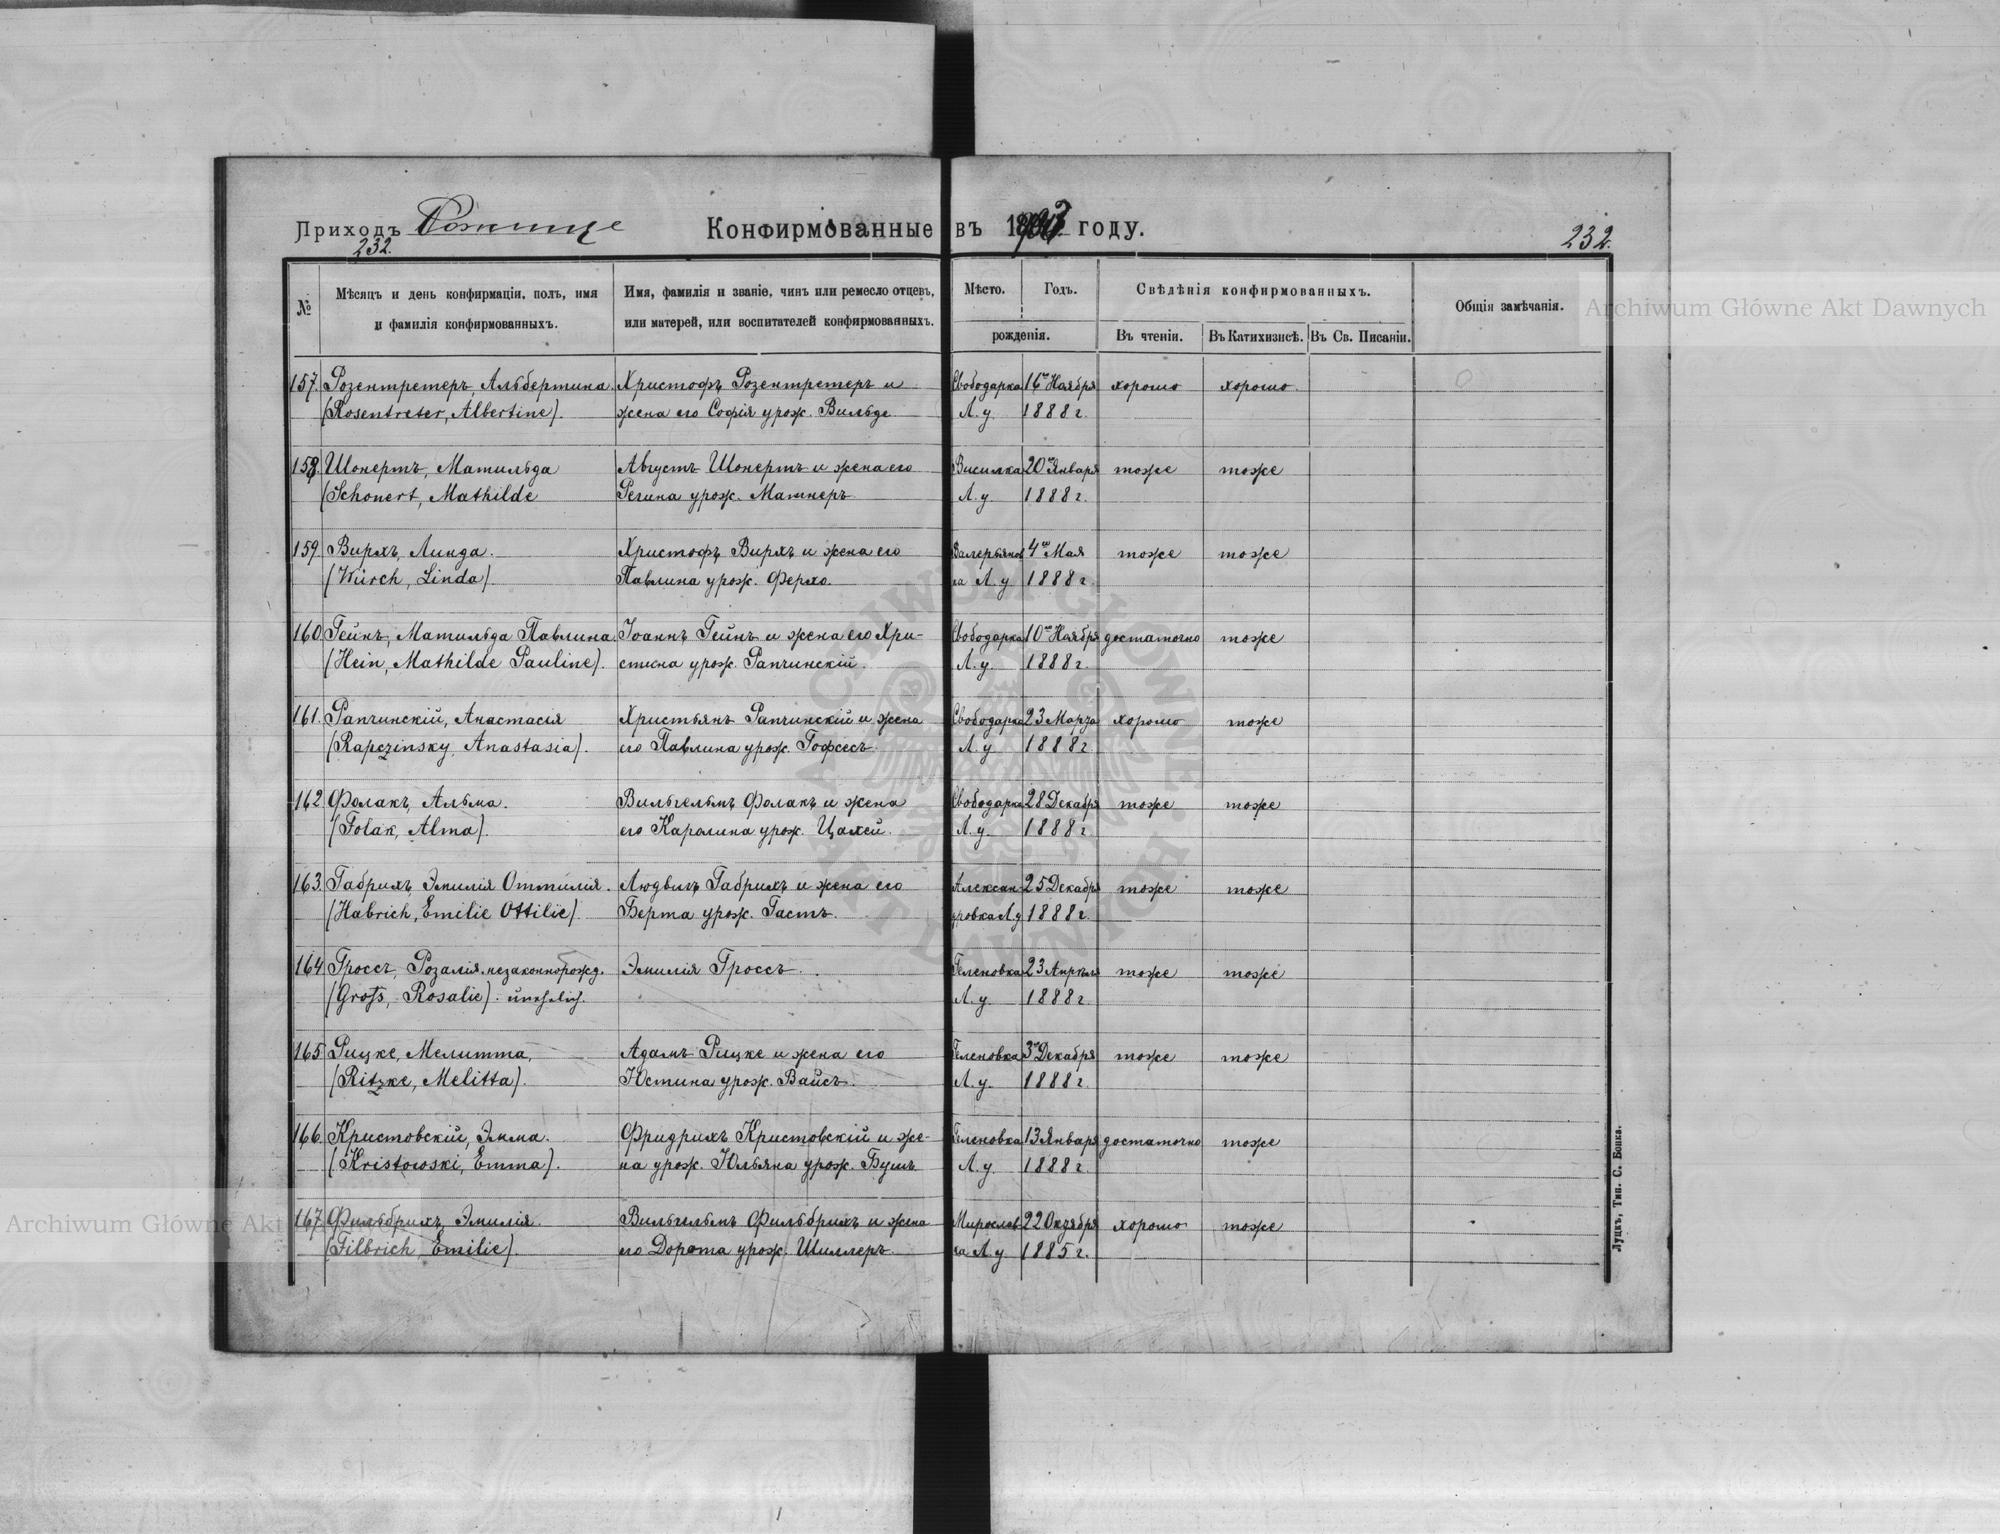 Приходъ Рожище Конфирмованные въ 1903 году.
232. 232.
№ Мѣсяцъ и день конфирмаціи, полъ, имя и фамилія конфирмованныхъ. Имя, фамилія и званіе, чинъ или ремесло отцевъ, или матерей, или воспитателей конфирмованныхъ. Мѣсто. Годъ. рожденія. Свѣдѣнія конфирмованныхъ. Въ чтеніи. Въ Катихизисѣ. Въ Св. Писаніи. Общія замѣчанія.
157. Розентретеръ, Альбертина. Христофъ Розентретеръ и Свободарка 16го Ноября хорошо хорошо
(Rosentreter, Albertine). жена его Софія урож. Вильде Л. у. 1888 г.
158. Шонертъ, Матильда Августъ Шонертъ и жена его Висилка 20го Января тоже тоже
(Schonert, Mathilde Регина урож. Матнеръ Л. у. 1888 г.
159. Вирхъ, Линда. Христофъ Вирхъ и жена его Валерьянов 4го Мая тоже тоже
(Würch, Linda). Павлина урож. Ферхо. ка Л. у. 1888 г.
160. Гейнъ, Матильда Павлина Іоаннъ Гейнъ и жена его Хри- Свободарка 10го Ноября достаточно тоже
(Hein, Mathilde Pauline). стина урож. Рапчинскій. Л. у. 1888 г.
161. Рапчинскій, Анастасія Христьянъ Рапчинскій и жена Свободарка 23 Марта хорошо тоже
(Rapczinsky, Anastasia). его Павлина урож. Л. у. 1888 г.
162. Фолакъ, Альма. Вильгельмъ Фолакъ и жена Свободарка 28 Декабря тоже тоже
(Folak, Alma). его Каролина урож. Цахей. Л. у. 1888 г.
163. Габрихъ Эмилія Оттилія. Людвигъ Габрихъ и жена его Алексан- 25 Декабря тоже тоже
(Habrich, Emilie Ottilie). Берта урож. Гастъ. дровка Л. у 1888 г.
164 Гроссъ, Розалія. незаконнорожд. Эмилія Гроссъ. Геленовка 23 Апреля тоже тоже
(Groß, Rosalie). unehelich. Л. у. 1888 г.
165 Рицке, Мелитта, Адамъ Рицке и жена его Геленовка 3го Декабря тоже тоже
(Ritzke, Melitta). Юстина урож. Вайсъ. Л. у. 1888 г.
166. Кристовскій, Эмма. Фридрихъ Кристовскій и же- Геленовка 13 Января достаточно тоже
(Kristowski, Emma). на урож. Юльяна урож. Бушъ Л. у. 1888 г.
167. Фильбрихъ, Эмилія. Вильгельмъ Фильбрихъ и жена Мирослав 22 Октября хорошо тоже
(Filbrich, Emilie). его Дорота урож. Шиллеръ ка Л. у 1885 г.
Луцкъ, Тип. С. Бонка.
Archiwum Główne Akt Dawnych
Archiwum Główne Akt Dawnych
ARCHIWUM GŁÓWNE AKT DAWNYCH